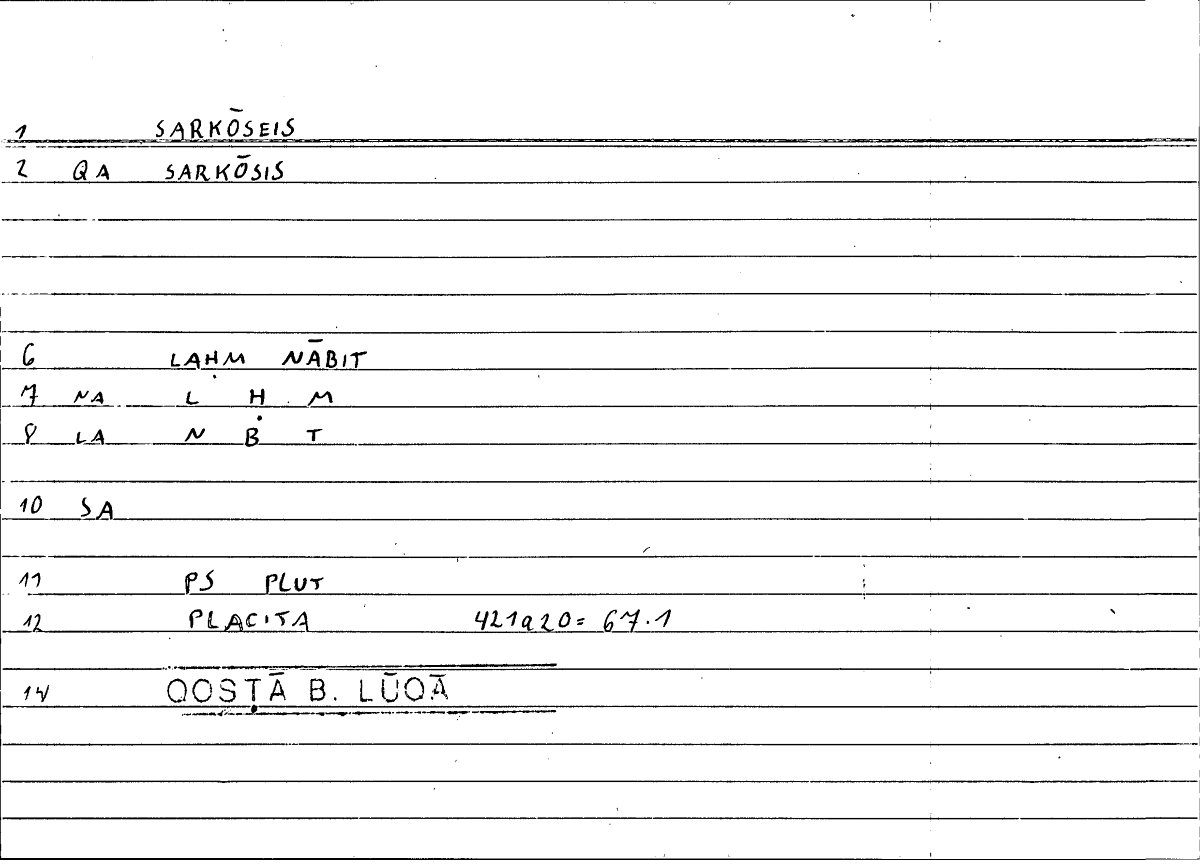 1 SARKŌSEIS
2 QA SARKŌSIS
6 LAḤM NĀBIT
7 NA L Ḥ M
8 LA N B T
10 SA
11 PS PLUT
12 PLACITA 421a20= 67.1
14 QOSṬĀ B. LŪQĀ